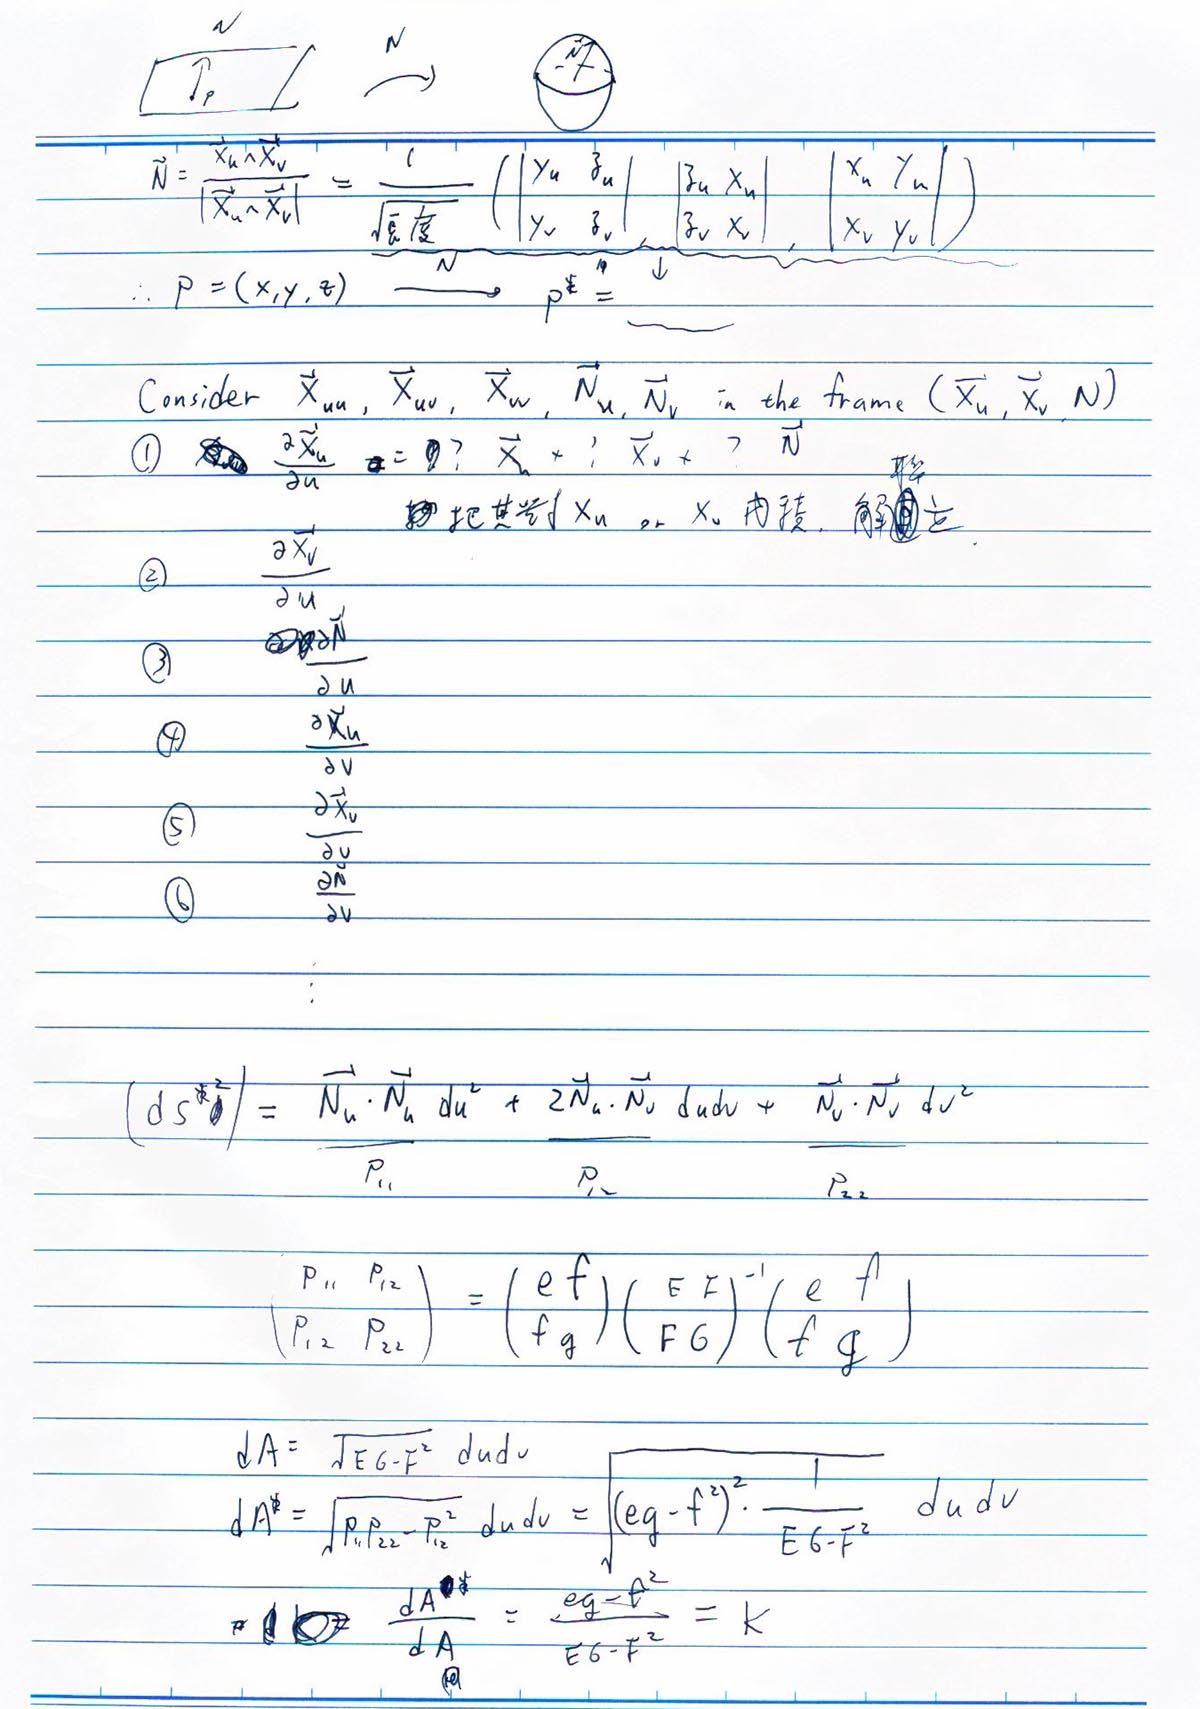 N N N
P
N⃗ = X⃗u ∧ X⃗v / |X⃗u ∧ X⃗v| = 1 / √長度 ( |yu zu; yv zv| , |zu xu; zv xv| , |xu yu; xv yv| )
∴ P = (x, y, z) —N→ P* =
Consider X⃗uu, X⃗uv, X⃗vv, N⃗u, N⃗v in the frame (X⃗u, X⃗v, N)
① ∂X⃗u/∂u = ? X⃗u + ? X⃗v + ? N⃗
把其對 Xu or Xv 內積. 解聯立.
② ∂X⃗v/∂u
③ ∂N⃗/∂u
④ ∂X⃗u/∂v
⑤ ∂X⃗v/∂v
⑥ ∂N⃗/∂v
⋮
(ds*²) = N⃗u · N⃗u du² + 2N⃗u · N⃗v dudv + N⃗v · N⃗v dv²
P₁₁ P₁₂ P₂₂
(P₁₁ P₁₂; P₁₂ P₂₂) = (e f; f g) (E F; F G)⁻¹ (e f; f g)
dA = √EG-F² dudv
dA* = √P₁₁P₂₂-P₁₂² dudv = √(eg-f²)² · 1/EG-F² dudv
dA*/dA = eg-f²/EG-F² = K